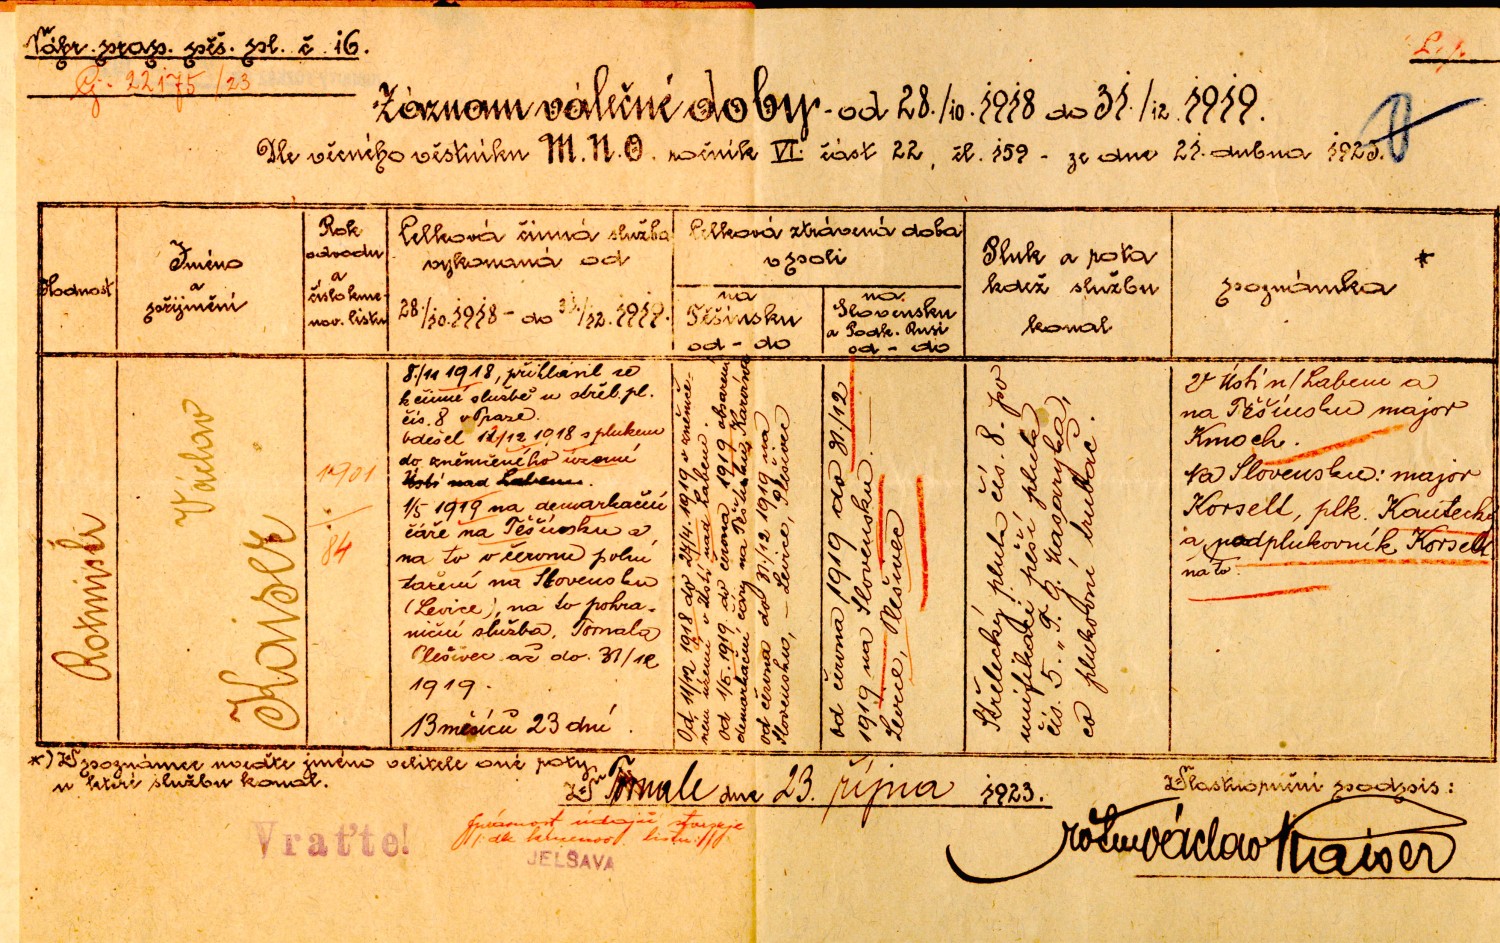 Náhr. prap. pěš. pl. č. 16.
Č. 22175/23
Záznam válečné doby - od 28./10. 1918 do 31./12. 1919.
Dle věcného věstníku M.N.O. ročník VI. část 22, čl. 159 - ze dne 21. dubna 1923.
Hodnost
Jméno
a
příjmení
Rok
odvodu
a
číslo kme-
nov. listu
Celková činná služba
vykonaná od
28./10. 1918 - do 31./12. 1919.
Celková ztrávená doba
v poli
na
Těšínsku
od - do
na
Slovensku
a Podk. Rusi
od - do
Pluk a rota
kdež službu
konal
poznámka *
Rotmistr
Václav
Kaiser
1901
84
8./11 1918, přihlásil se
k činné službě u střel. pl.
čís. 8 v Praze.
odešel 11/12 1918 s plukem
do zněmčeného území
Ústí nad Labem.
1/5 1919 na demarkační
čáře na Těšínsku a
na to v červnu polní
tažení na Slovensku
(Levice), na to pohra-
niční služba, Tornala
Plešivec až do 31/12
1919.
13 měsíců 23 dní.
Od 11/12 1918 do 24/4. 1919 v zněmče-
ném území v Ústí nad Labem.
od 1/5 1919 do června 1919 obsazení
demarkační čáry na Těšínsku, Karviná
od června do 31/12 1919 na
Slovensku, - Levice, Plešivec
od června 1919 do 31/12
1919 na Slovensku.
Levice, Plešivec
Střelecký pluk čís. 8. po
unifikaci pěší pluk
čís. 5. „T. G. Masaryka,
co plukovní trubač.
V Ústí n/Labem a
na Těšínsku major
Kmoch.
Na Slovensku: major
Korselt, plk. Koutecký
a podplukovník Korselt
na to.
*) V poznámce uveďte jméno velitele oné roty,
u které službu konal.
V Tornale dne 23. října 1923.
Vlastnoruční podpis:
rotm Václav Kaiser
Vraťte!
Správnost údajů stvrzuje
JELŠAVA